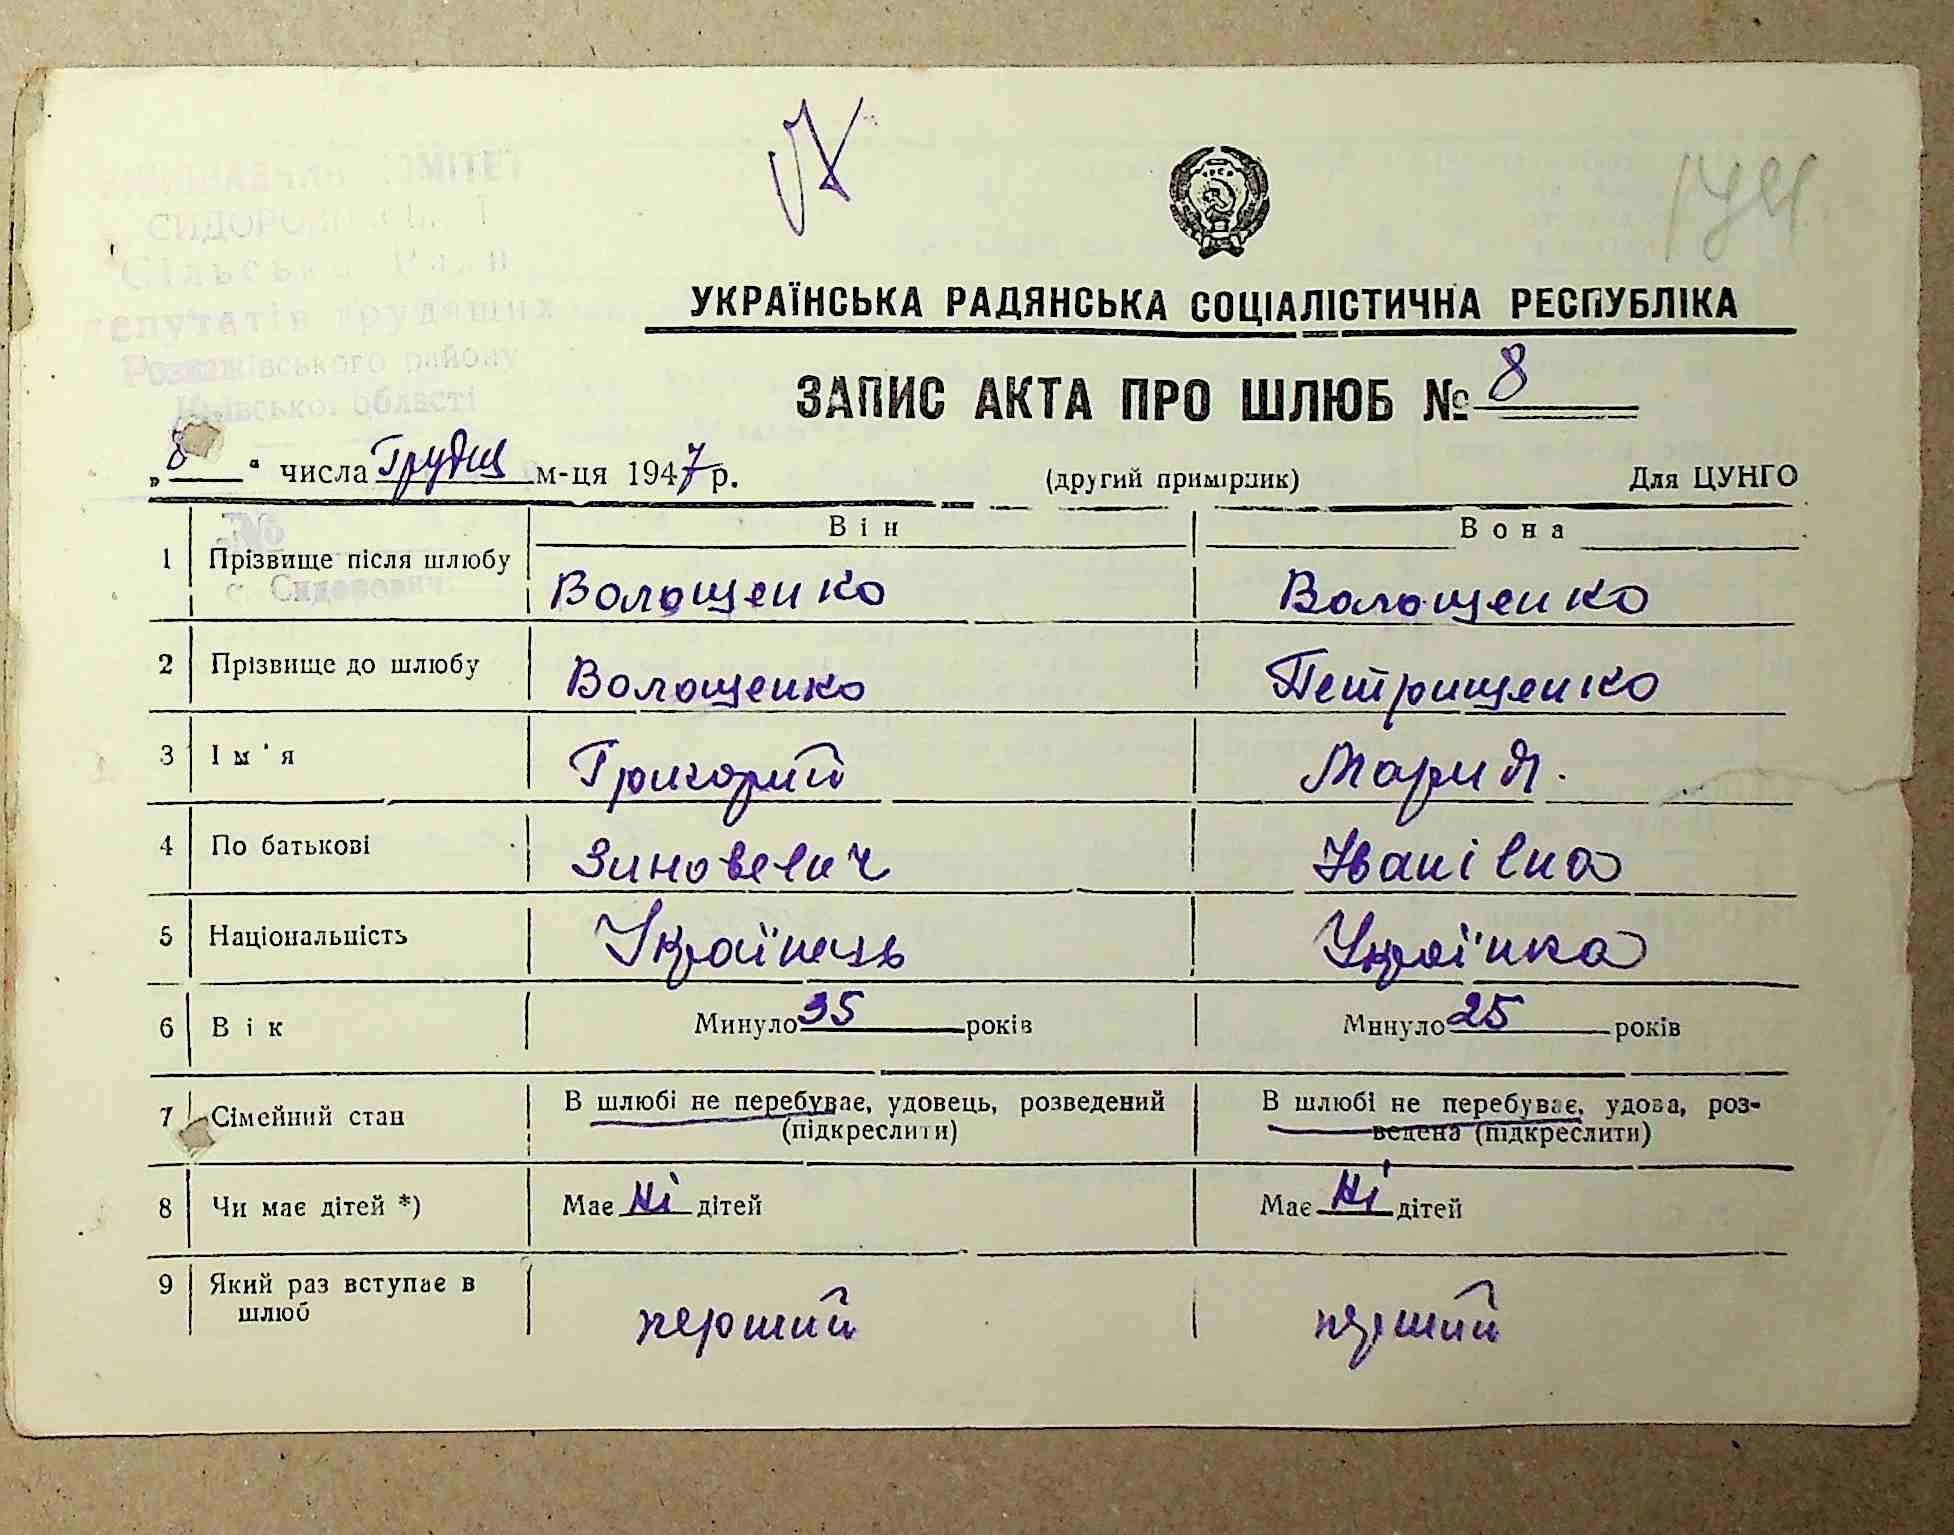 144
УКРАЇНСЬКА РАДЯНСЬКА СОЦІАЛІСТИЧНА РЕСПУБЛІКА
ЗАПИС АКТА ПРО ШЛЮБ № 8
Сільська Рада
депутатів трудящих
Розважівського району
Київської області
„8“ числа Грудня м-ця 1947 р. (другий примірник) Для ЦУНГО
№
Він Вона
1 Прізвище після шлюбу Волощенко Волощенко
с. Сидорович
2 Прізвище до шлюбу Волощенко Петрищенко
3 Ім'я Григорий Мария.
4 По батькові Зиновевич Іванівна
5 Національність Українець Українка
6 Вік Минуло 35 років Минуло 25 років
7 Сімейний стан В шлюбі не перебуває, удовець, розведений (підкреслити) В шлюбі не перебуває, удова, роз-
ведена (підкреслити)
8 Чи має дітей *) Має Ні дітей Має Ні дітей
9 Який раз вступає в шлюб перший перший